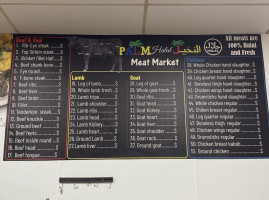 PALM Halal النخيل
Meat Market
حلال
HALAL
All Meats are
100% Halal
and Fresh
Beef & Veal
1. Rib-Eye steak
2. Top Sirloin steak
3. Sirloin fillet Half
4. Beef shank bone
5. Eye round
6. T-bone steak
7. Beef ribs
8. Beef liver
9. Beef brain
10. Fillet
11. Tenderloin steak
12. Beef knuckle
13. Ground beef
14. Beef feets
15. Beef inside round
16. Beef head
17. Beef tongue
Lamb
18. Leg of lamb
19. Whole lamb fresh
20. Lamb ribs
21. Lamb shoulder
22. Lamb ribs
23. Lamb head
24. Lamb Kidney
25. Lamb heart
26. Ground lamb
27. Lamb liver
Goat
28. Leg of goat
29. Whole goat fresh
30. Goat ribs
31. Goat head
32. Goat Kidney
33. Goat liver
34. Goat heart
35. Goat head
36. Ground goat
37. Goat shoulder
Chicken
38. Whole Chicken hand slaughter
39. Chicken breast hand slaughter
40. Leg quarter hand slaughter
41. Boneless thighs hand slaughter
42. Chicken wings hand slaughter
43. Drumsticks hand slaughter
44. Whole chicken regular
45. Ground chicken regular
46. Chicken breast regular
47. Leg quarter regular
48. Boneless thighs regular
49. Chicken wings regular
50. Drumsticks regular
51. Chicken liver regular
52. Chicken breast kabab
53. Ground Chicken